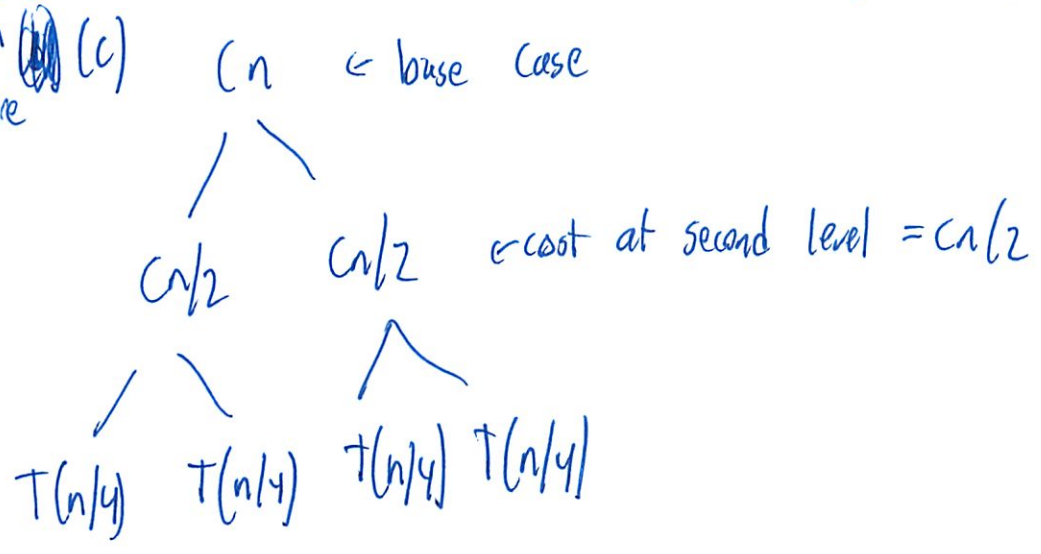 (c) Cn ← base case
re
Cn/2 Cn/2 ← cost at second level = Cn/2
T(n/4) T(n/4) T(n/4) T(n/4)